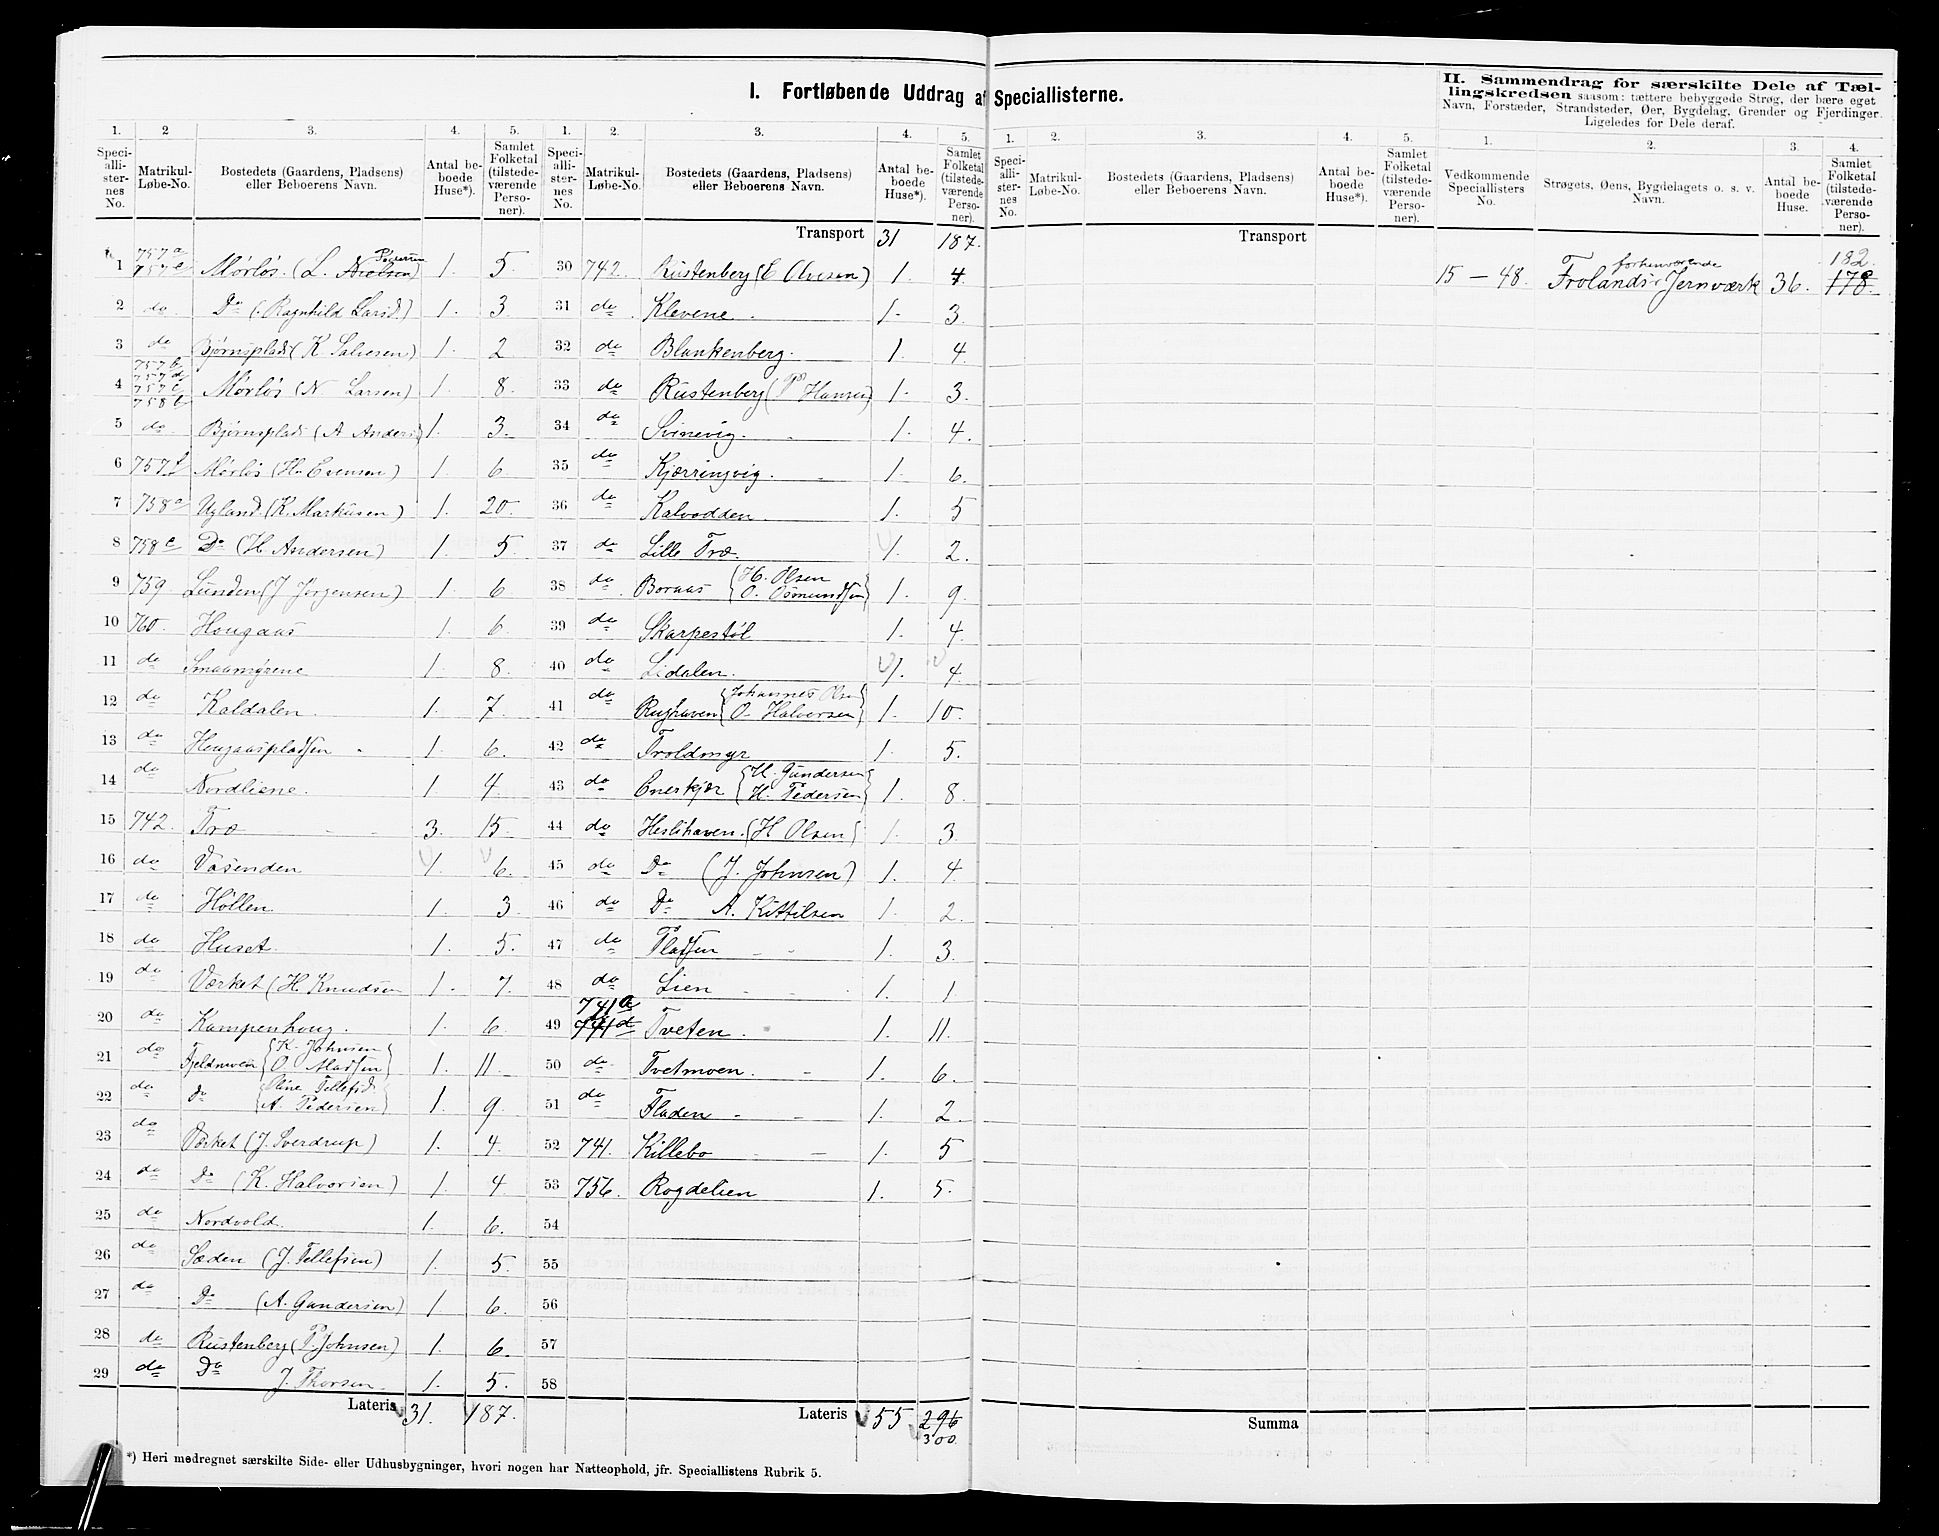 I. Fortløbende Uddrag af Speciallisterne.
II. Sammendrag for særskilte Dele af Tæl-
lingskredsen saasom: tættere bebyggede Strøg, der bære eget
Navn, Forstæder, Strandsteder, Øer, Bygdelag, Grender og Fjerdinger.
Ligeledes for Dele deraf.
1. Speci-alli-ster-nes No. 2 Matrikul-Løbe-No. 3. Bostedets (Gaardens, Pladsens) eller Beboerens Navn. 4. Antal be-boede Huse*). 5. Samlet Folketal (tilstede-værende Perso-ner).
1. Speci-alli-ster-nes No. 2. Matrikul-Løbe-No. 3. Bostedets (Gaardens, Pladsens) eller Beboerens Navn. 4. Antal be-boede Huse*). 5. Samlet Folketal (tilstede-værende Perso-ner).
1. Speci-alli-ster-nes No. 2. Matrikul-Løbe-No. 3. Bostedets (Gaardens, Pladsens) eller Beboerens Navn. 4. Antal be-boede Huse*). 5. Samlet Folketal (tilstede-værende Perso-ner).
1. Vedkommende Speciallisters No. 2. Strøgets, Øens, Bygdelagets o. s. v. Navn. 3. Antal be-boede Huse. 4. Samlet Folketal (tilstede-værende Perso-ner).
1 757a 757e Mørløs. (L. Nielsen Pedersen) 1. 5.
2 do Do (Ragnhild Larsd) 1. 3.
3 do Bjørnsplads (K. Salvesen) 1. 2
4 757b 757d 757c 758b Mørløs (N Larsen) 1. 8.
5 do Bjørnsplads (A Anders) 1. 3.
6 757f Mørløs (H. Evensen) 1. 6.
7 758a Ugland (K. Markusen) 1. 20.
8 758c Do (H Andersen) 1. 5.
9 759 Lunden (J Jørgensen) 1. 6
10 760. Hougaas 1. 6.
11 do Smaamyrene 1. 8.
12 do Kaldalen. 1. 7.
13 do Hougaaspladsen 1. 6.
14 do Nordliene. 1. 4.
15 742. Træ 3. 15.
16 do Vasenden 1. 6.
17 do Høllen. 1. 3.
18 do Huset. 1. 5.
19 do Værket (H. Knudsen 1. 7.
20 do Kampenhoug. 1. 6.
21 do Fjeldmoen {K. Johnsen O. Madsen} 1. 11.
22 do Do {Oline Tellefsd. A. Pedersen} 1. 9.
23 do Værket (J. Sverdrup) 1. 4.
24 do Do (K. Halvorsen) 1. 4
25 do Nordvold. 1. 6.
26 do Sæden (J. Tellefsen) 1. 5.
27 do Do (A. Gundersen) 1. 6.
28 do Rustenberg (P. Johnsen) 1. 6.
29 do Do J. Thorsen. 1. 5.
Lateris 31. 187.
Transport 31 187.
30 742. Rustenberg (E Olvesen) 1. 4.
31 do Klevene. 1. 3.
32 do Blankenberg. 1. 4.
33 do Rustenberg (P Hansen) 1. 3.
34 do Svinevig. 1. 4.
35 do Kjærringvig. 1. 6.
36 do Kalvodden. 1. 5
37 do Lille Træ. 1. 2.
38 do Boraas {H. Olsen O. Osmundsen} 1. 9.
39 do Skarpestøl 1. 4.
40 do Lidalen. 1. 4.
41 do Rughaven {Johannes Olsen O. Halvorsen} 1. 10.
42 do Troldmyr 1. 5.
43 do Enerkjær {H. Gundersen H. Pedersen} 1. 8.
44 do Heslihaven. (H Olsen) 1. 3.
45 do Do (J. Johnsen) 1. 4.
46 do Do A. Kittilsen 1. 2.
47 do Pladsen 1. 3.
48 do Lien 1. 1.
49 741a 741d Tveten. 1. 11.
50 do Tvetmoen. 1. 6.
51 do Fladen 1. 2.
52 741. Killebo 1. 5
53 756. Rogdelien 1. 5.
54
55
56
57
58
Lateris 55 296
300.
Transport
Summa
15 — 48. forhenværende Frolands Jernværk 36. 182. 178.
*) Heri medregnet særskilte Side- eller Udhusbygninger, hvori nogen har Natteophold, jfr. Speciallistens Rubrik 5.